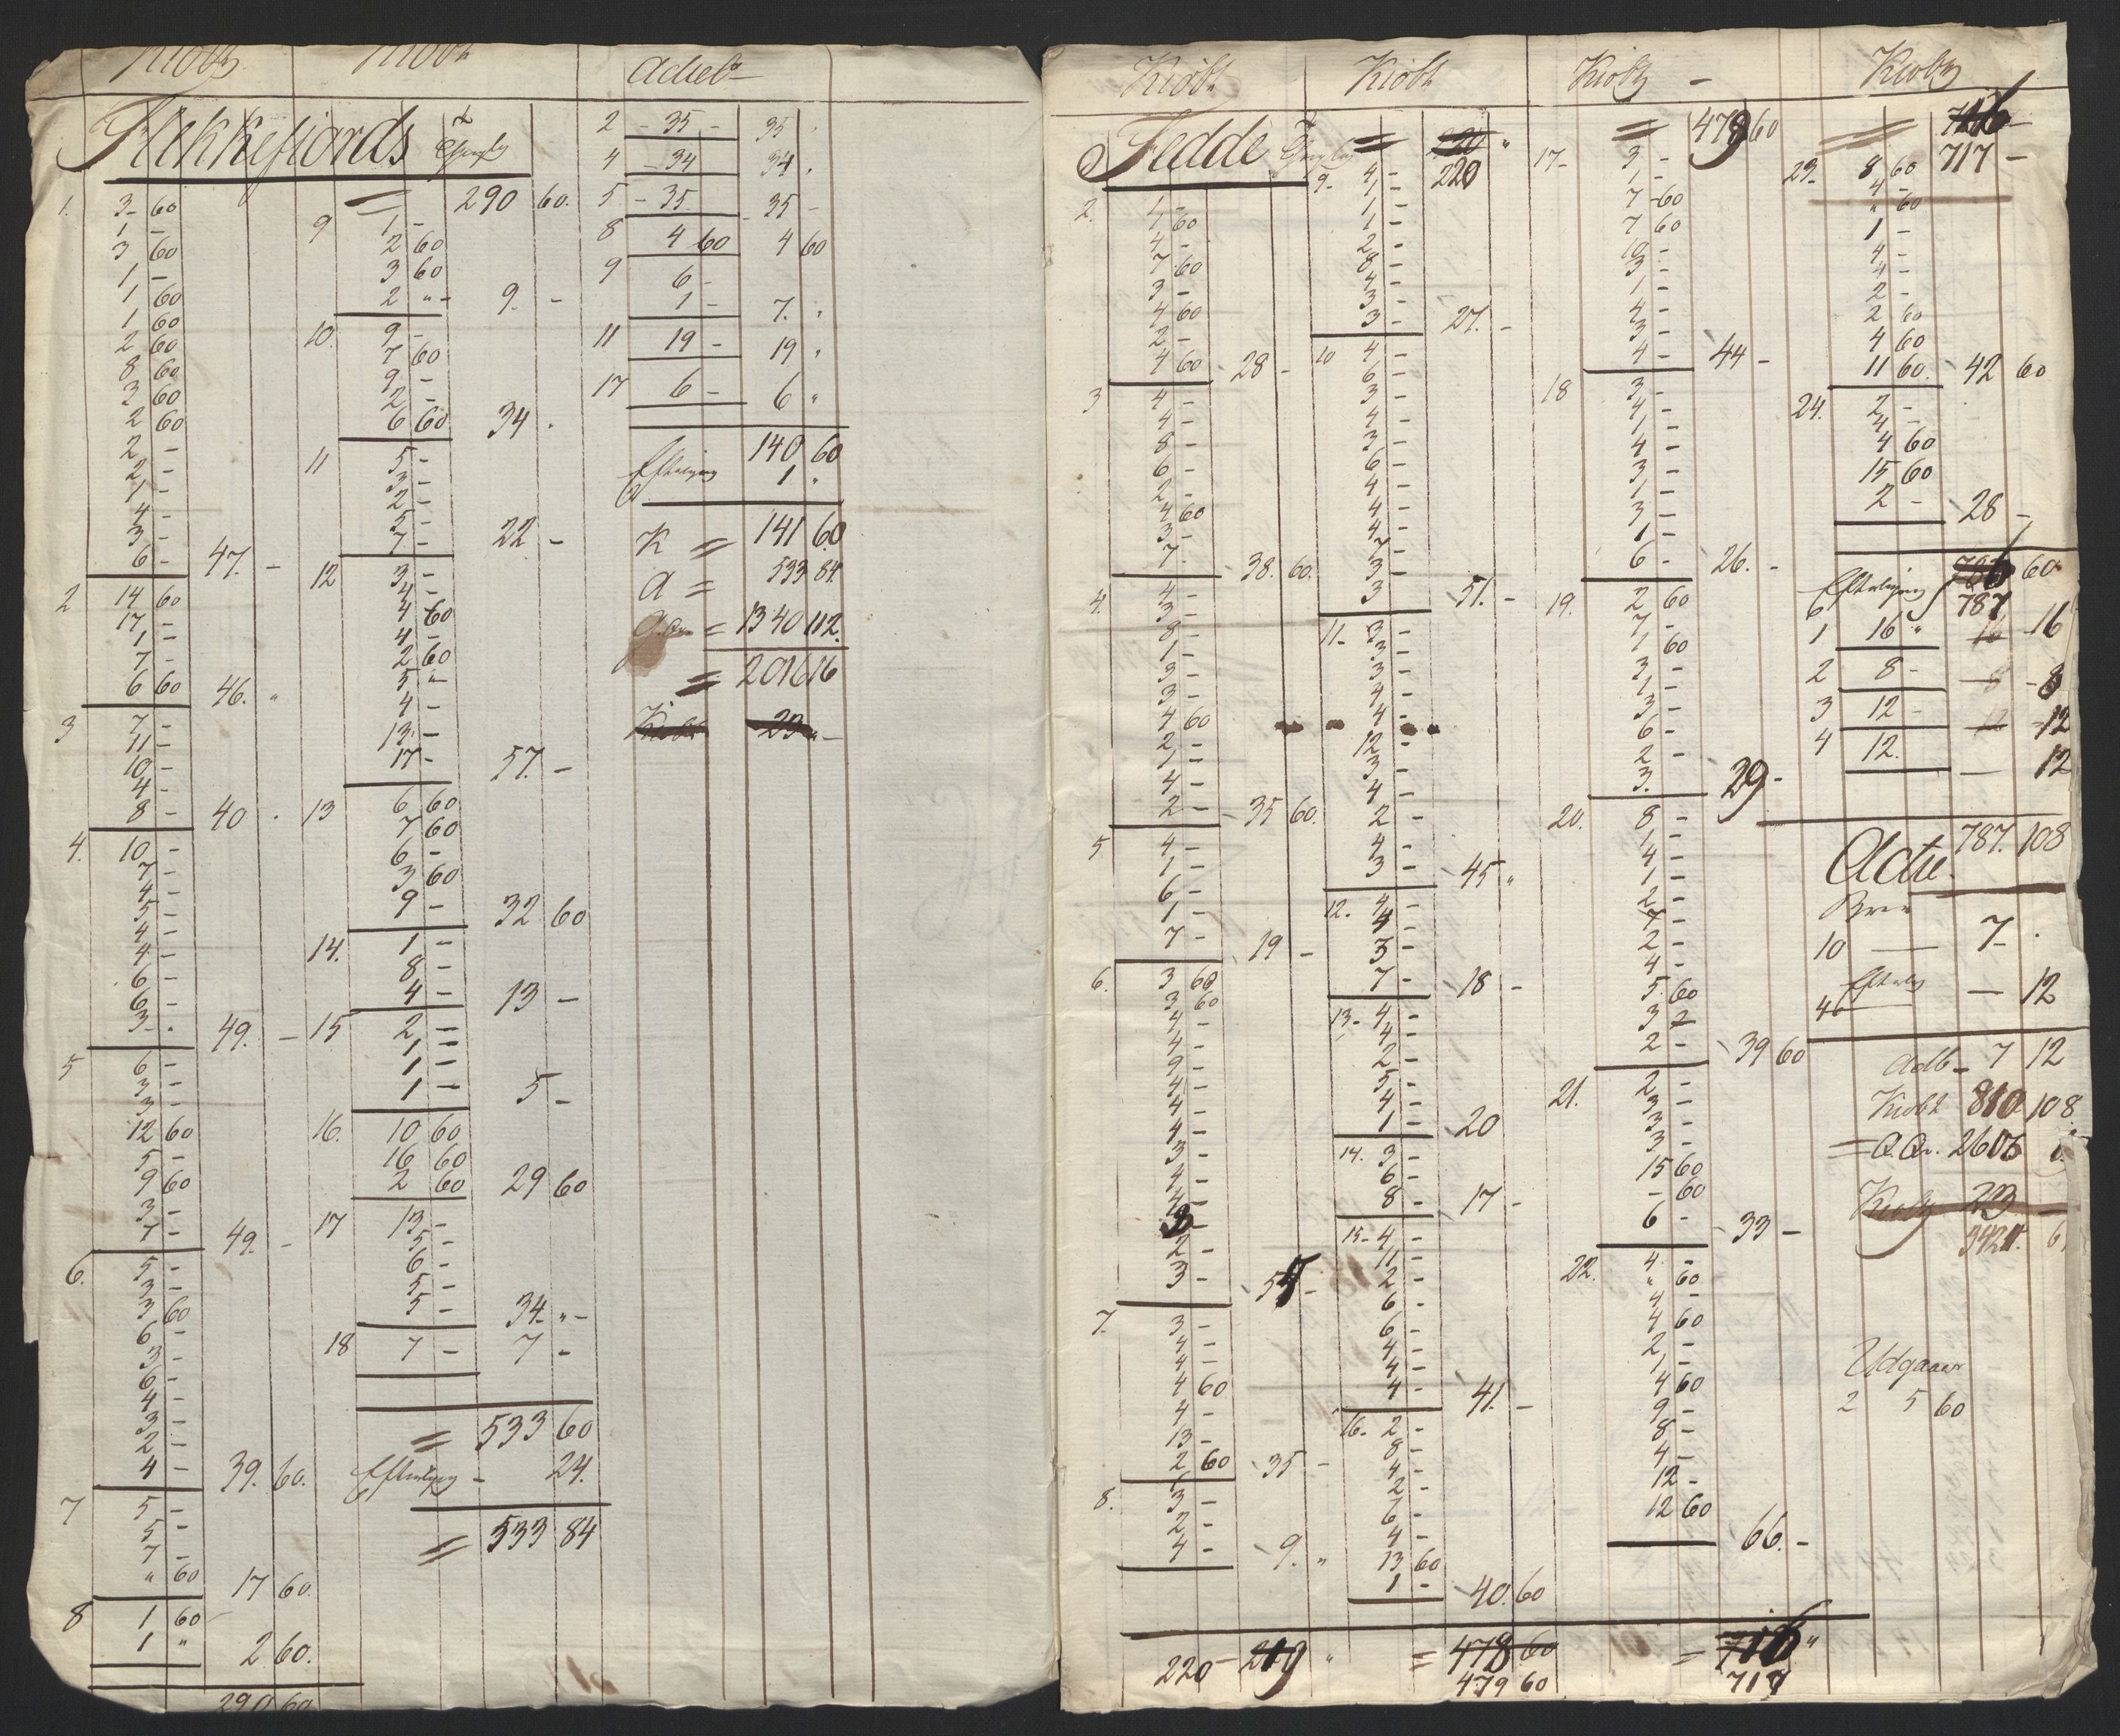 Kiøbt Kiøbt Adtel
Flekkefiords
1. 3 - 60
1 -
3 60
1 -
1 60
1 60
2 60
8 60
3 60
2 60
2 -
2 -
1 -
4 -
3 -
6 - 47. -
2 14 60
17 -
1 -
7 -
6 60 46. "
3 7 -
11 -
10 -
4 -
8 - 40 .
4. 10 -
7 -
4 -
5 -
4 -
4 -
6 -
6 -
3 - . 49. -
5 6 -
3 -
3 -
12 60
5 -
9 60
3 -
7 - 49. -
6. 5 -
3 -
3 60
6 -
3 -
6 -
4 -
3 -
2 -
4 - 39. 60.
7 5 -
5 -
7 -
" 60 17 60.
8 1 60
1 " 2 60.
290 60
= 290 60.
9 1 -
2 60
3 60
2 " - 9. -
10. 9 -
7 60
9 -
2 -
6 60 34 .
11 5 -
3 -
2 -
5 -
7 - 22 -
12 3 -
4 -
4 60
4 -
2 60
5 "
4 -
13 -
17 - 57. -
13 6 60
7 60
6 -
3 60
9 - 32 60
14. 1 -
8 -
4 - 13 -
15 2 -
1 -
1 -
1 - 5 -
16. 10 60
16 60
2 60 29 60
17 13 -
5 -
6 -
5 -
5 - 34 " -
18 7 - 7 -
= 533 60
24.
= 533 84
2 - 35 - 35 .
4 - 34 34 .
5 - 35 35 -
8 4 60 4 60
9 6 -
1 - 7. "
11 19 - 19 "
17 6 - 6 "
140 60
1 "
K = 141 60
a = 533 84.
= 1340 112.
= 2016 16
Kiøbt 23 " -
Kiøbt Kiøbt Kiøbt - Kiøbt
Fedde
2. 1 -
4 60
4 -
7 60
3 -
4 60
2 -
4 60 28 -
3 4 -
4 -
8 -
6 -
2 -
4 60
3 -
7 . 38. 60.
4. 4 -
3 -
8 -
1 -
3 -
3 -
4 60
2 -
1 -
4 -
2 - 35 60.
5 4 -
1 -
6 -
1 -
7 - 19 -
6. 3 60
3 60
4 -
4 -
9 -
4 -
4 -
4 -
3 -
4 -
4 -
3 -
2 -
3 -
7. 3 -
4 -
4 -
4 60
4 -
13 -
2 60 35 -
8. 3 -
2 -
4 - 9. "
220 219 "
= 220 "
220
9. 4 -
1 -
1 -
2 -
8 -
4 -
3 -
3 - 27. -
10 4 -
6 -
3 -
4 -
3 -
6 -
4 -
4 -
4 -
7 -
3 -
3 51. -
11 - 3 -
3 -
3 -
4 -
4 -
12 -
3 -
4 -
2 -
4 -
3 - 45 "
12. 4 -
4 -
3 -
7 - 18 -
13 - 4 -
4 -
2 -
5 -
4 -
1 - 20
14. 3 -
6 -
8 - 17 -
15 - 4 -
11 -
2 -
6 -
6 -
4 -
4 -
4 - 41. -
16 - 2 -
8 -
4 -
2 -
6 -
4 -
13 60
1 - 40. 60
= 478 60
479 60
= 479 60
17 - 3 -
1 -
7 - 60
7 60
10 -
3 -
1 -
4 -
3 -
4 - 44 -
18 3 -
4 -
4 -
3 -
1 -
3 -
1 -
6 - 26. -
19. 2 60
7 -
1 60
3 -
1 -
3 -
6 -
2 -
3. 29 -
20. 8 -
1 -
4 -
1 -
2 -
7 -
2 -
4 -
5 60
3 2
2 - 39 60
21. 2 -
3 -
3 -
3 -
15 60
- 60
6 - 33 -
22. 4 -
" 60
4 -
4 60
2 -
1 -
4 60
9 -
8 -
4 -
12 -
12 60
66. -
= 716 "
717
= 716 -
717 -
23. 8 60
4 -
" 60
1 -
4 -
4 -
2 -
2 60
4 60
11 60. 42 60
24. 2 -
4 -
4 60
15 60
2 - 28 -
786 60
787
1 16 " 16 - 16
2 8 - 8 - 8
3 12 - 12 - 12
4 12. 12
787. 108
Adtel.
10 — 7 - .
4 — 12
Adtb - 7 12
Kiøbt 810 108.
= 2605
Kiøbt 23
3424. 6
Udgaaer
2 5 60